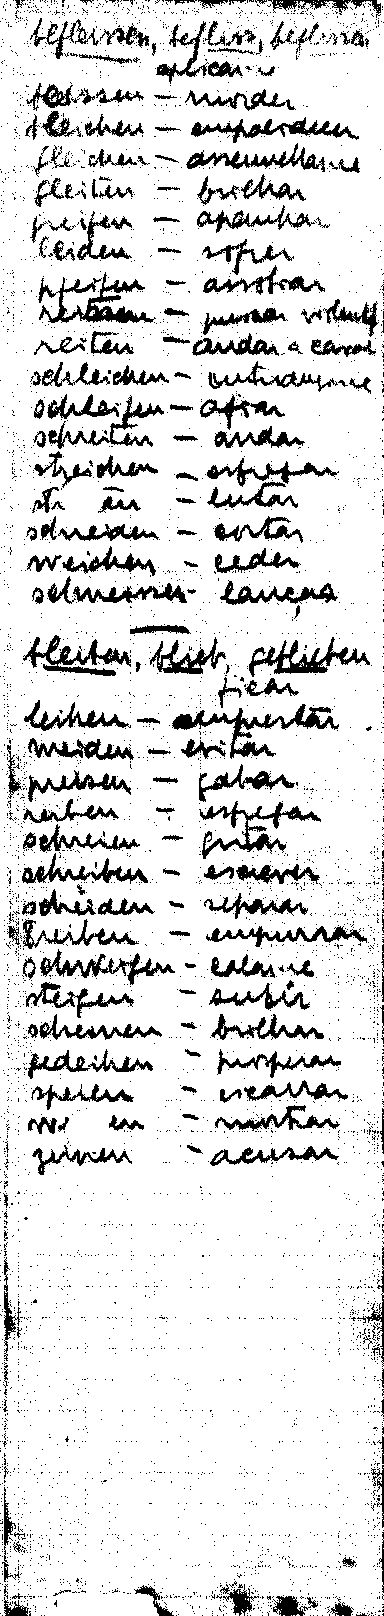 befleissen, befliss, beflissen
aplicar-se
beissen – morder
bleichen – empalidecer
gleichen – assemelhar-se
gleiten – brilhar
greifen – apanhar
leiden – sofrer
pfeifen – assobiar
reiten – andar a caval
schleichen – introduzir-se
schleifen – afiar
schreiten – andar
streichen – esfregar
str en – lutar
schneiden – cortar
weichen – ceder
schmeissen – lançar
bleiben, blieb, geblieben
ficar
leihen – emprestar
meiden – evitar
preisen – gabar
reiben – esfregar
schreien – gritar
schreiben – escrever
scheiden – separar
treiben – empurrar
schweigen – calar-se
steigen – subir
scheinen – brilhar
gedeihen – prosperar
speien – escarrar
we en – mostrar
zeihen – acusar